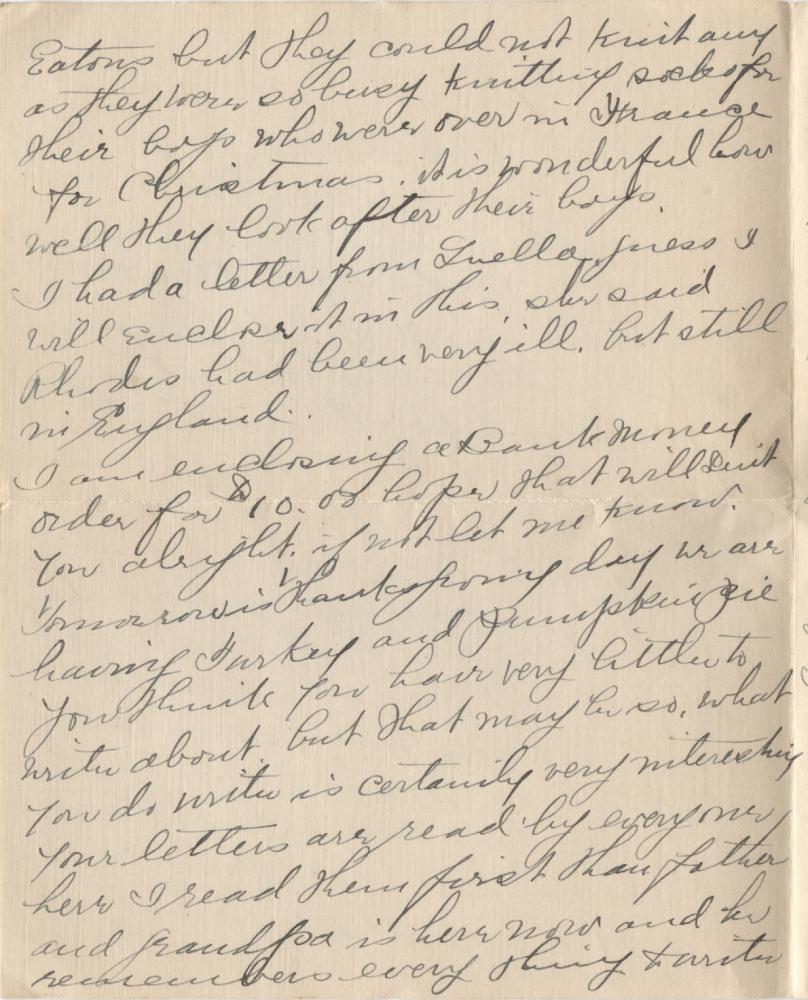 Eatons but they could not knit any
as they were so busy knitting socks for
their boys who were over in France
for Christmas. it is wonderful how
well they look after their boys.
I had a letter from Luella, guess I
will enclose it in this, she said
Rhodes had been very ill. but still
in England.
I am enclosing a Bank Money
order for $10.00 hope that will suit
you alright. if not let me know.
Tomorrow is Thanksgiving day we are
having Turkey and Pumpkin pie
You think you have very little to
write about. but that may be so, what
you do write is certainly very interesting
Your letters are read by everyone
here I read them first than father
and grandpa is here now and he
remembers every thing & write